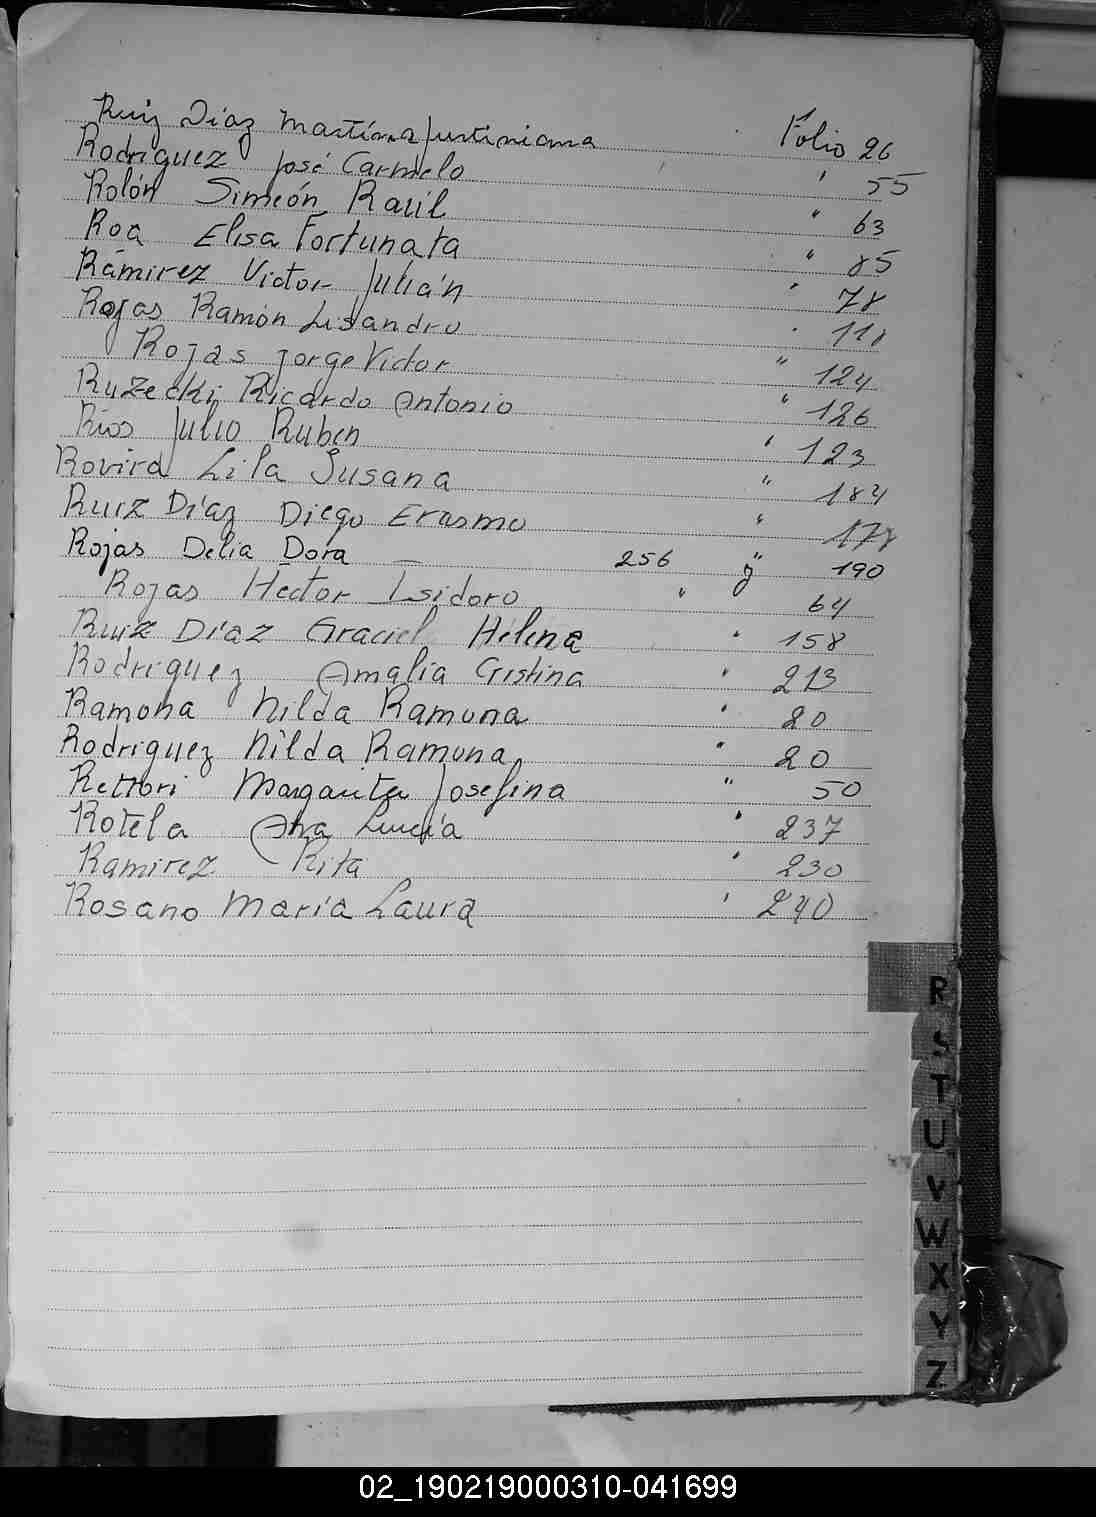 Ruiz Díaz Martina Justiniana Folio 26
Rodríguez José Carmelo " 55
Rolón Simeón Raúl " 63
Roa Elisa Fortunata " 85
Rámirez Victor Julián " 78
Rojas Ramón Lisandro "
Rojas Jorge Victor " 124
Ruzecki Ricardo Antonio " 126
Ríos Julio Ruben " 123
Rovira Lila Susana " 184
Ruiz Díaz Diego Erasmo "
Rojas Delia Dora 256 " y 190
Rojas Héctor Isidoro " 64
Ruiz Díaz Graciel Helena " 158
Rodriguez Amalia Cristina " 213
Ramona Nilda Ramona " 20
Rodriguez Nilda Ramona " 20
Rettori Margarita Josefina " 50
Rotela Ana Lucía " 237
Ramirez Rita " 230
Rosano María Laura " 240
R
S
T
U
V
W
X
Y
Z
02_190219000310-041699